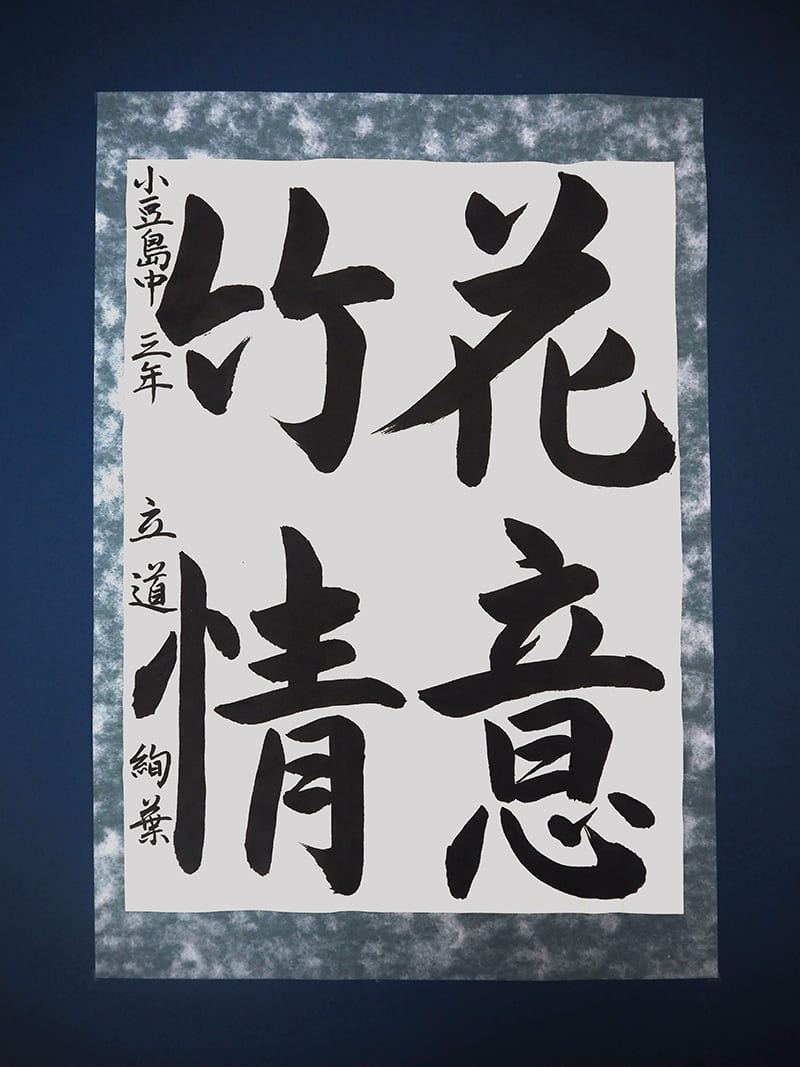 花意
竹情
小豆島中 三年 立道 絢葉